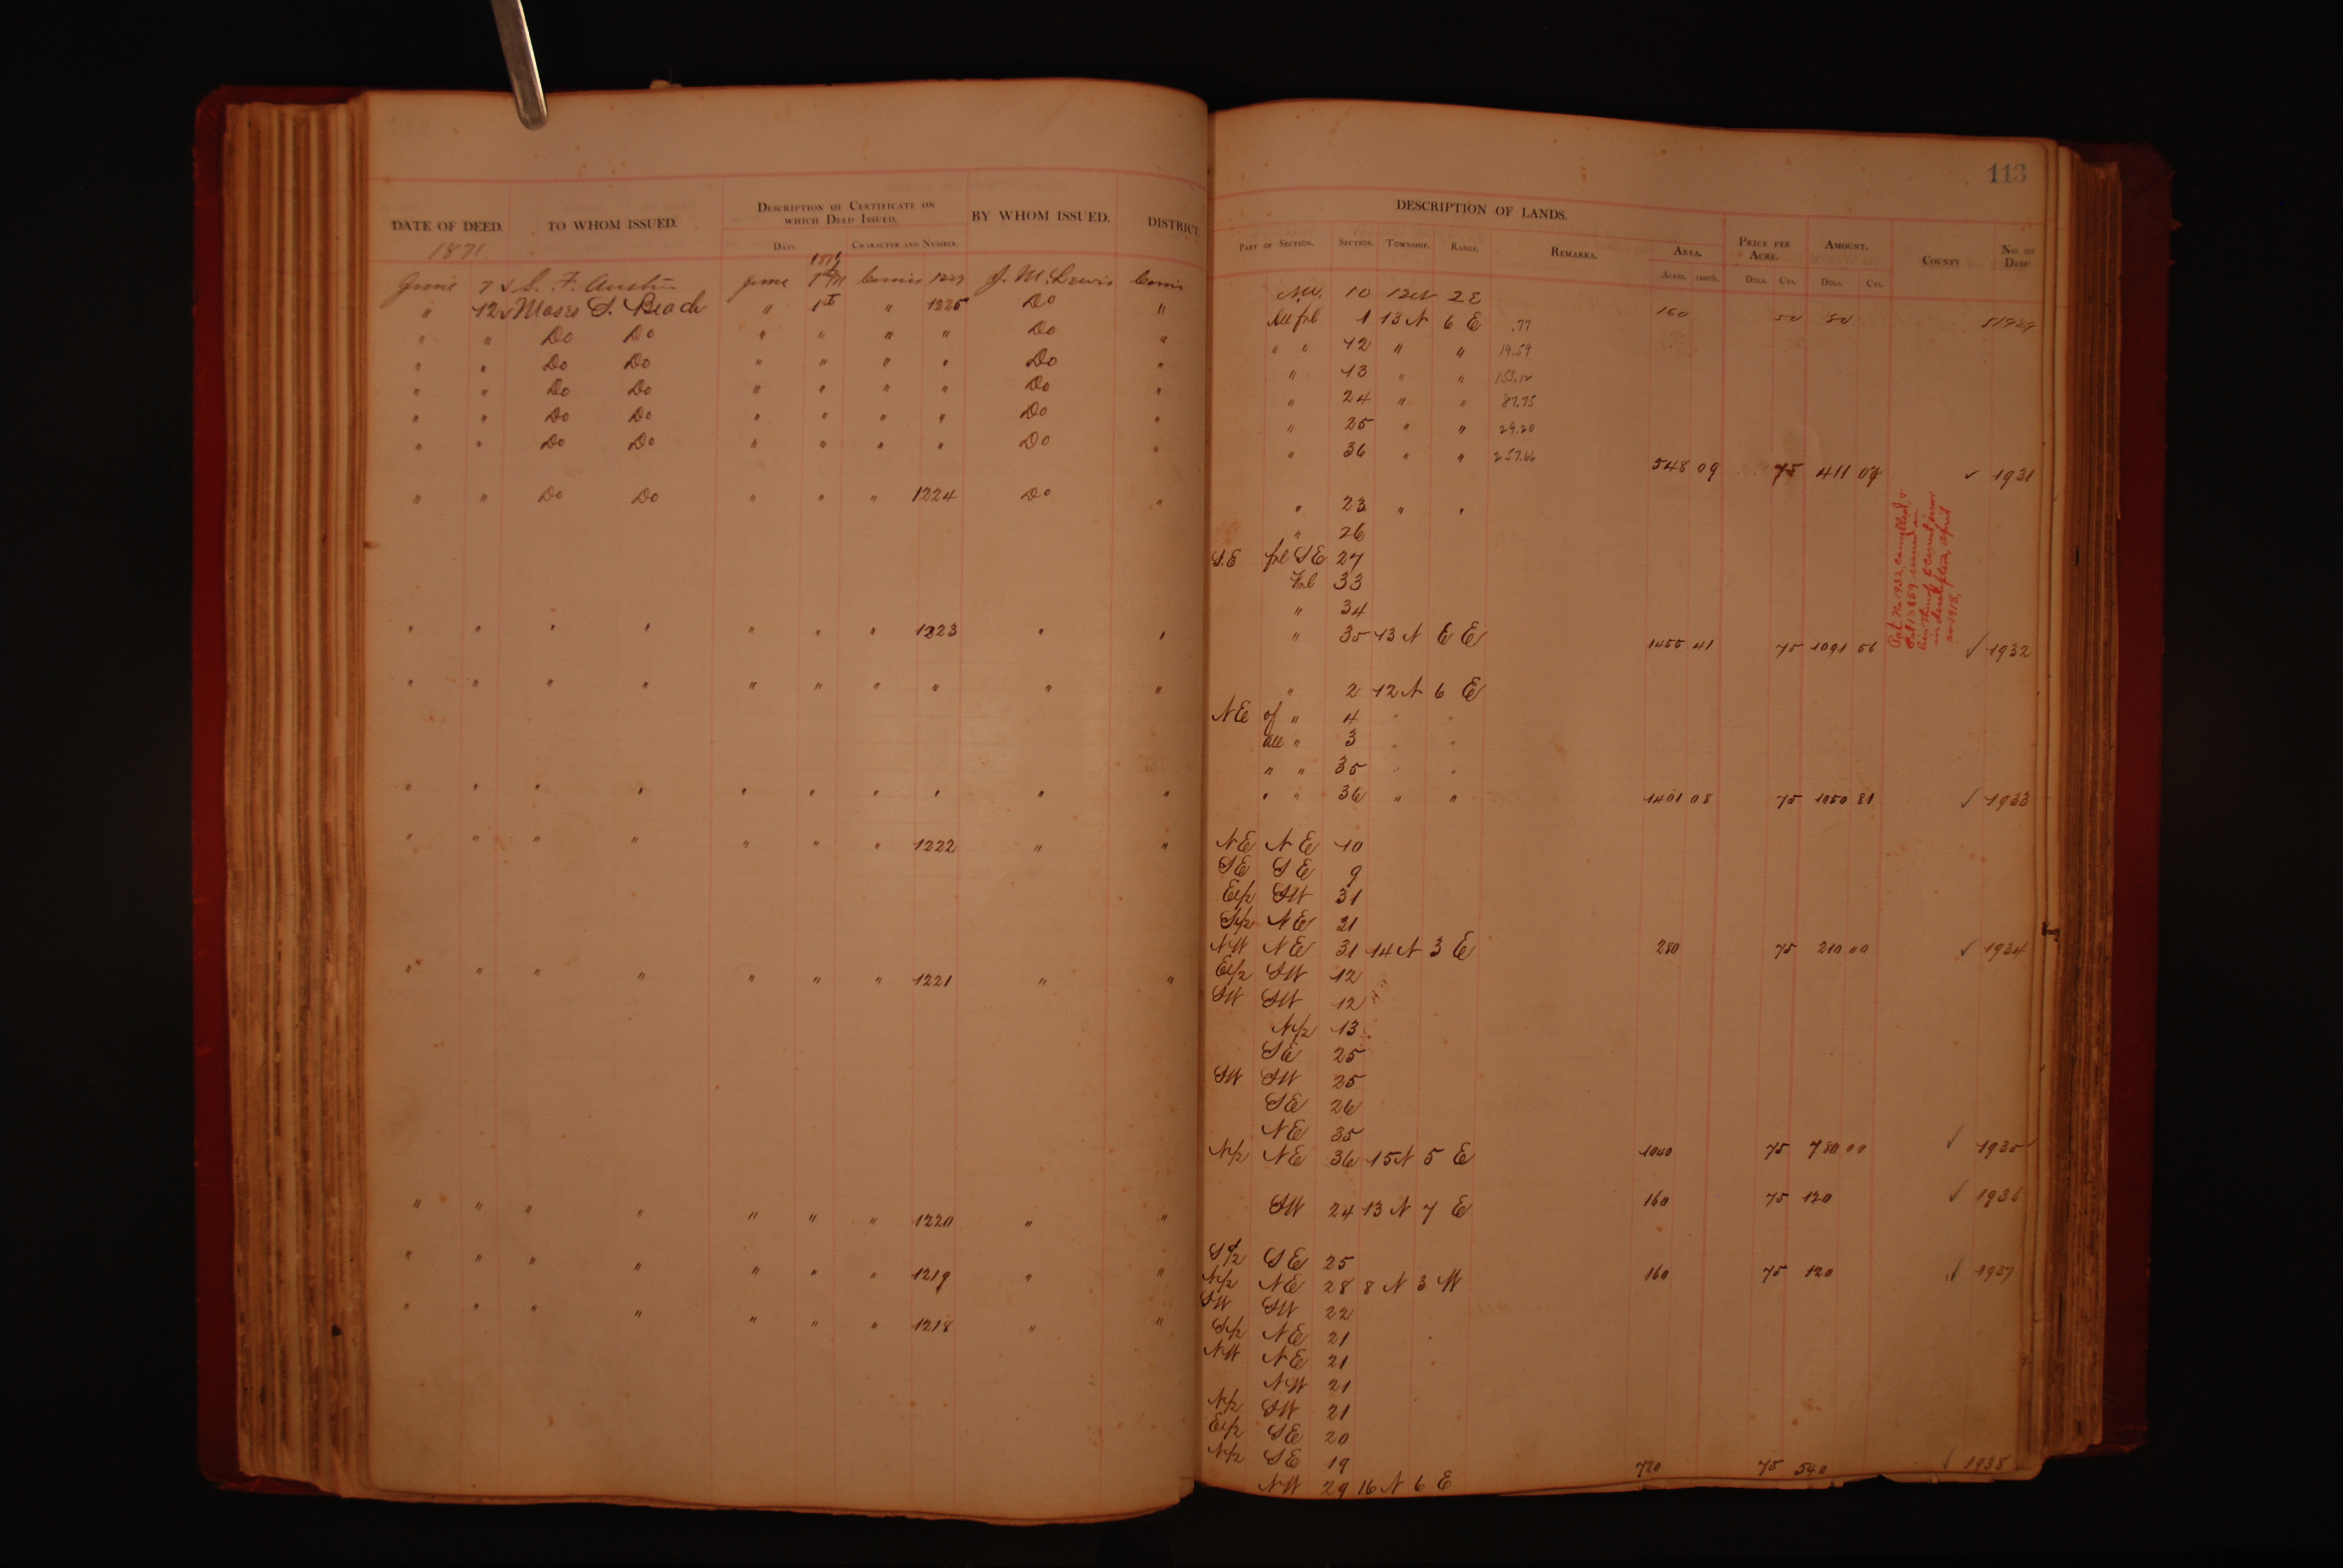 113
DATE OF DEED. TO WHOM ISSUED. DESCRIPTION OF CERTIFICATE ON WHICH DEED ISSUED. BY WHOM ISSUED. DISTRICT. DESCRIPTION OF LANDS. PRICE PER ACRE. AMOUNT. COUNTY NO. OF DEED
DATE CHARACTER AND NUMBER. PART OF SECTION. SECTION. TOWNSHIP. RANGE. REMARKS. AREA.
ACRES. DOLL. CTS. DOLL. CTS.
1871
June 7 √ S. F. Austin June 1227 J. M. Lewis N.W. 10 12N 2E 160 50 80
" 12 √ Moses S. Beach " 1st " 1225 Do " All frl 1 13 N 6 E .77
" " Do Do " " " " Do " " " 12 " " 19.59
" " Do Do " " " " Do " " 13 " " 153.12
" " Do Do " " " " Do " " 24 " " 87.75
" " Do Do " " " " Do " " 25 " " 29.20
" " Do Do " " " " Do " " 36 " " 257.66 548 09 75 411 √ 1931
" " Do Do " " " 1224 Do " " 23 " "
" 26
S.E frl SE 27
Frl 33
" 34
" " " " " " " 1223 " " " 35 13 N 6 E 1455 41 75 1091 56 √ 1932
" " " " " " " " " " " 2 12 N 6 E
NE of " 4 " "
all " 3 " "
" " 35 " "
" " " " " " " " " " " " 36 " " 1401 08 75 1050 81 √ 1933
" " " " " " " 1222 " " NE NE 10
SE SE 9
E1/2 SW 31
S1/2 NE 21
NW NE 31 14 N 3 E 280 75 210 00 √ 1934
" " " " " " " 1221 " " E1/2 SW 12
SW SW 12 "
N1/2 13
SE 25
SW SW 25
SE 26
NE 35
N1/2 NE 36 15 N 5 E 1040 75 780 00 √ 1935
" " " " " " " 1220 " " SW 24 13 N 7 E 160 75 120 √ 1936
S1/2 SE 25
" " " " " " " 1219 " " N1/2 NE 28 8 N 3 W 160 75 120 √ 1937
SW SW 22
" " " " " " " 1218 " " S1/2 NE 21
NW NE 21
NW 21
N1/2 SW 21
E1/2 SE 20
N1/2 SE 19
NW 29 16 N 6 E 720 75 540 √ 1938